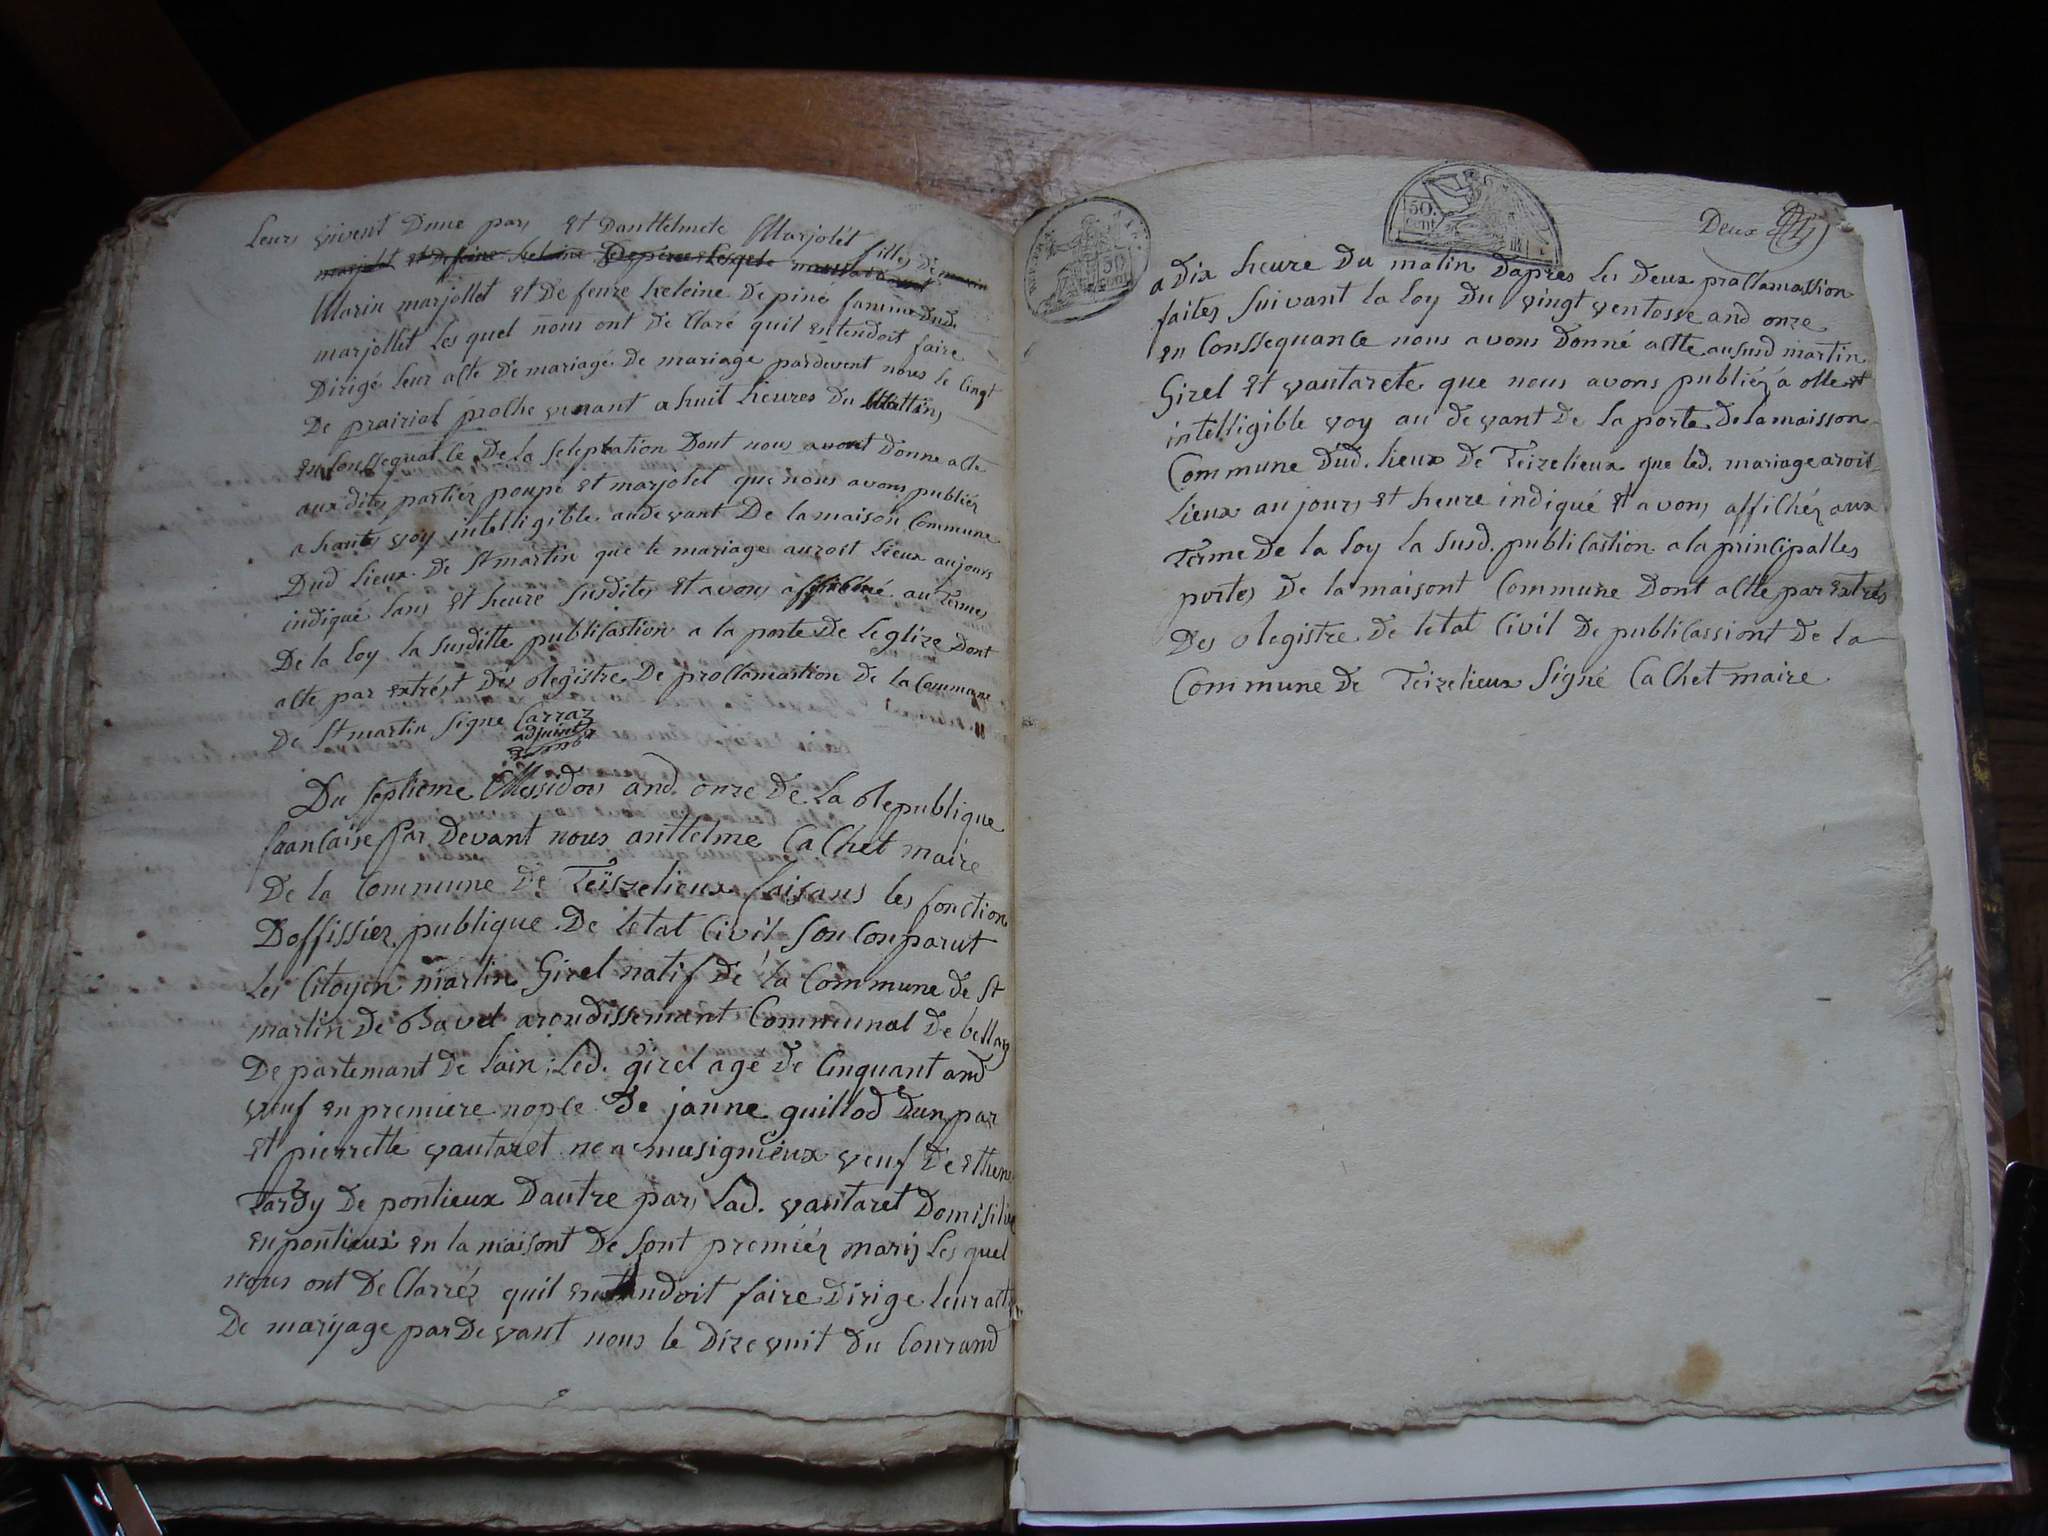 Leurs vivent Dune pars Et Danttelmete Marjolét filles De marin
marjolet
Marin marjollet Et De feure heleine De piné famme Dud.
marjollet les quel nous ont De Claré quil entendoit faire
Dirigé leur alte De mariagé De mariage pardevent nous le Cingt
De prairial prolhe venant a huit heures Du Mattins
en Conssequalle De la Seleptation Dont nous avont Donne alte
aux dites partiér poupé Et marjolet que nous avons publiér
a hautes voy intelligible audevant De la maison Commune
Dud lieux De St martin que le mariage auroit lieux aujours
indiqué lans Et heure Susdites Et avons affiché au termes
De la loy la Susditte publicastion a la porte De leglize Dont
alte par extrést Des Registre De procllamastion de la Commune
De St martin Signe Carraz
adjuint
Du Septieme Messidors and onze De La Republique
franlaise Par Devant nous anttelme CaChet maire
De la Commune De Teiszelieux faisans les fonction
Doffissiér publique De letat Civil Son Conparut
Les Citoyen martin Girel natif De la Commune de St
martin De Bavel arondissemant Communal De bellay
Departemant De lain; Led. girel age De Cinquant and
veuf en premiere nopce De janne guillod Dun par
Et pierrette vautaret ne a musignieux veuf De Ethene
Tardy De pontieux Dautre pars Lad. vautaret Domisiliee
en pontieux en la maisont De Sont premiér maris Les quel
nous ont De Clarréz quil entandoit faire Dirige leur alte
De mariyage par De vant nous le Dizevuit Du Courand
50.
cent
Deux
a Dix heure Du matin Dapres les Deux procllamassion
faites Suivant la loy Du vingt ventosse and onze
en Conssequanle nous avons Donné alte aususd martin
Girel Et vautarete que nous avons publiéz a otte et
intelligible voy au devant De la porte De la maisson
Commune Dud. lieux De Teizelieux que led. mariage arois
lieux au jours Et heure indiqué Et avons affichéz aux
Terme De la loy la Susd. publicastion a la principalles
portes De la maisont Commune Dont alte par Extrés
Des Registre De letat Civil De publicassiont De la
Commune De Teizelieux Signé CaChet maire